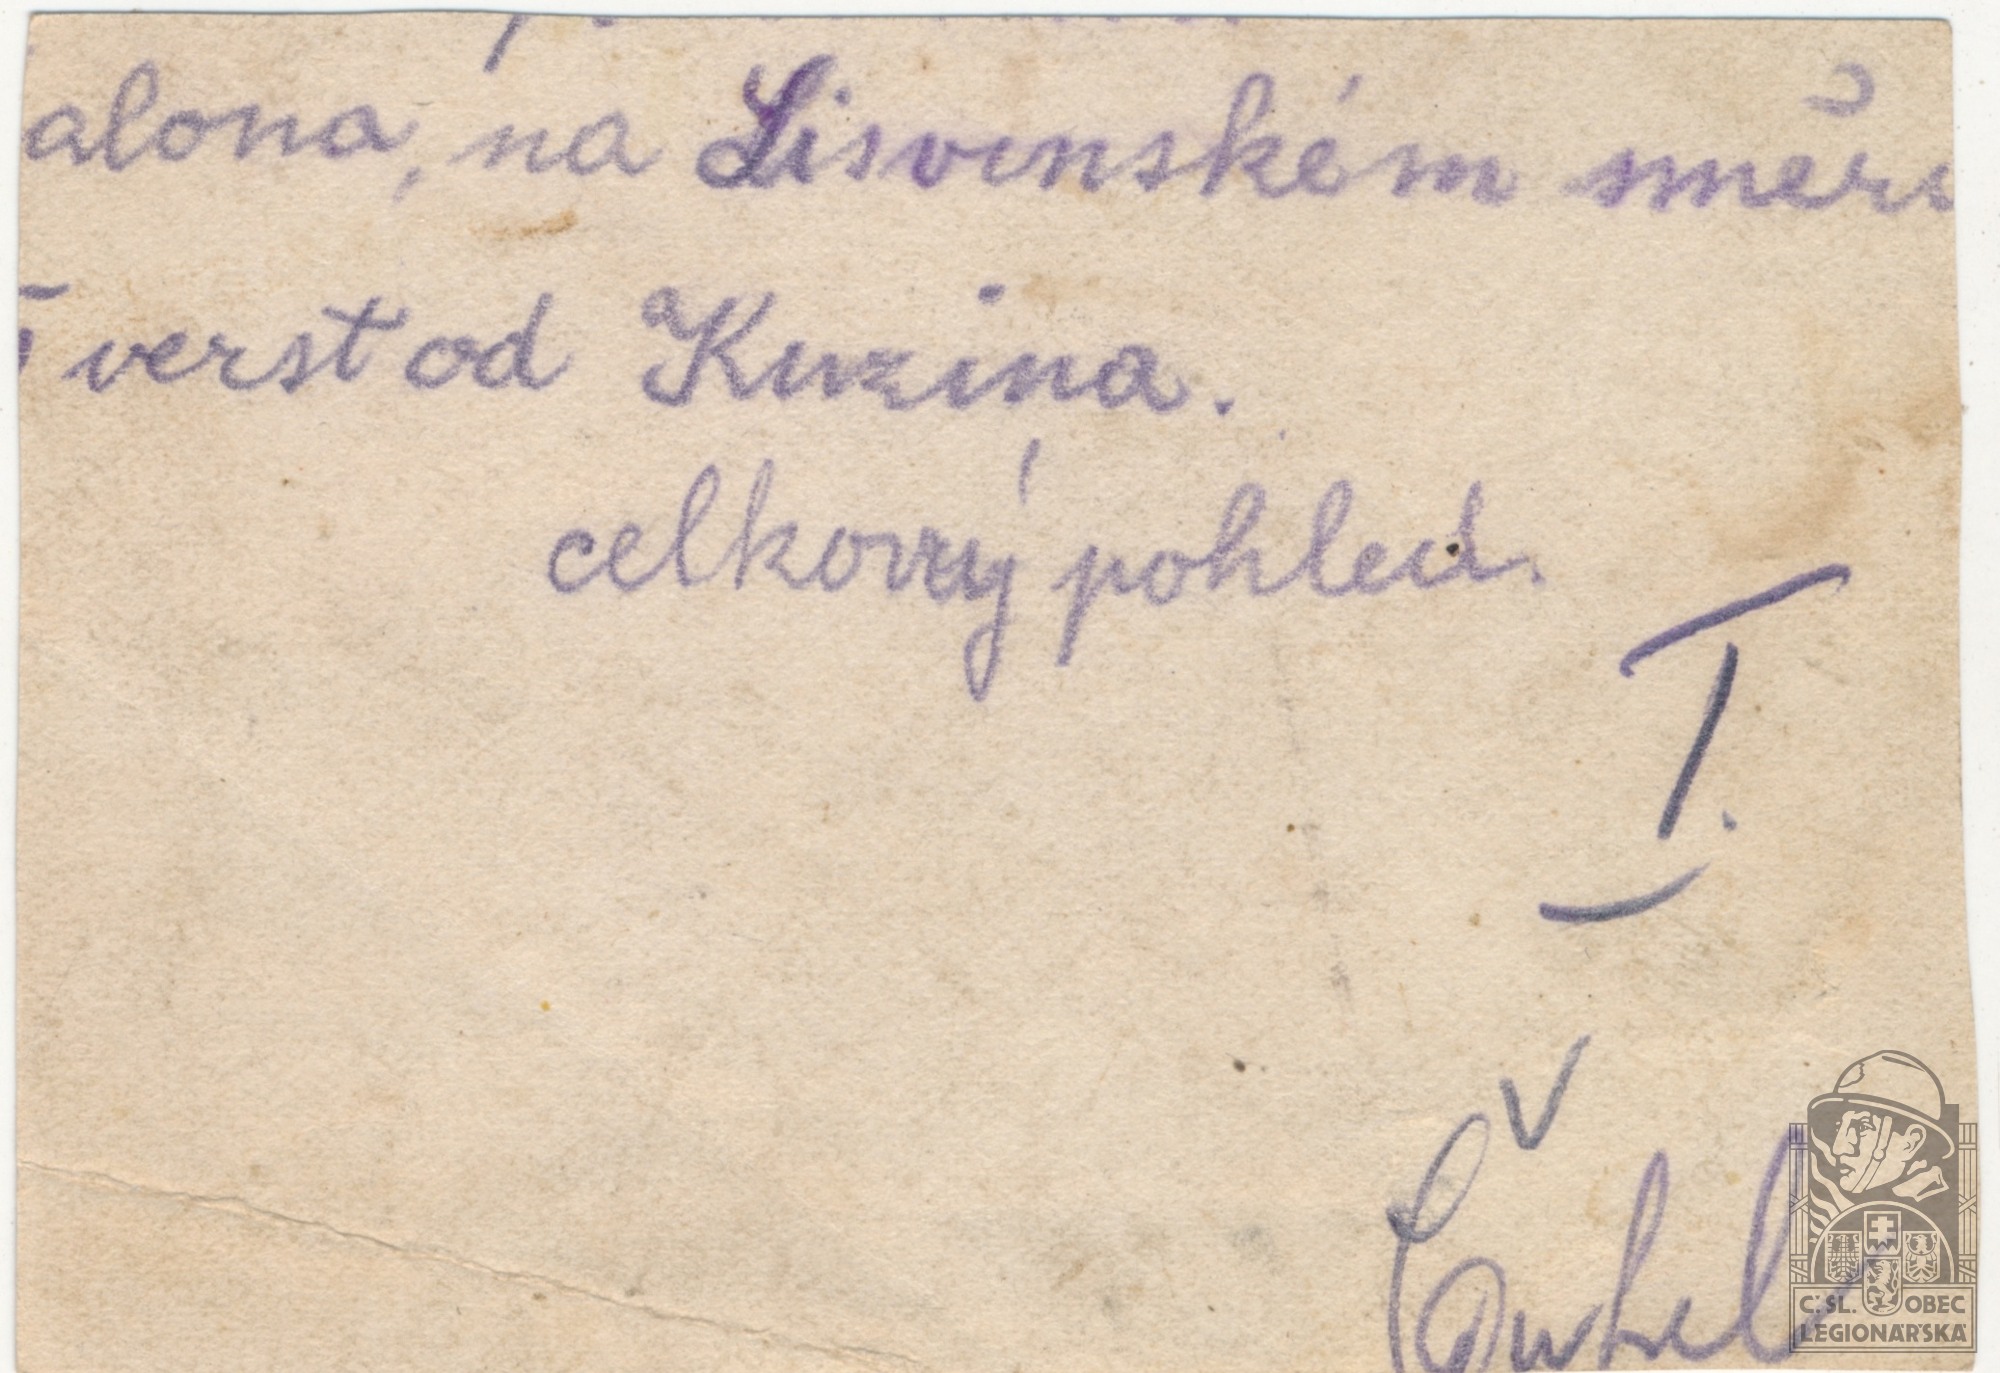 alona, na Lisvenském směru
verst od Kuzina.
celkový pohled.
I.
C.SL. OBEC
LEGIONÁŘSKÁ